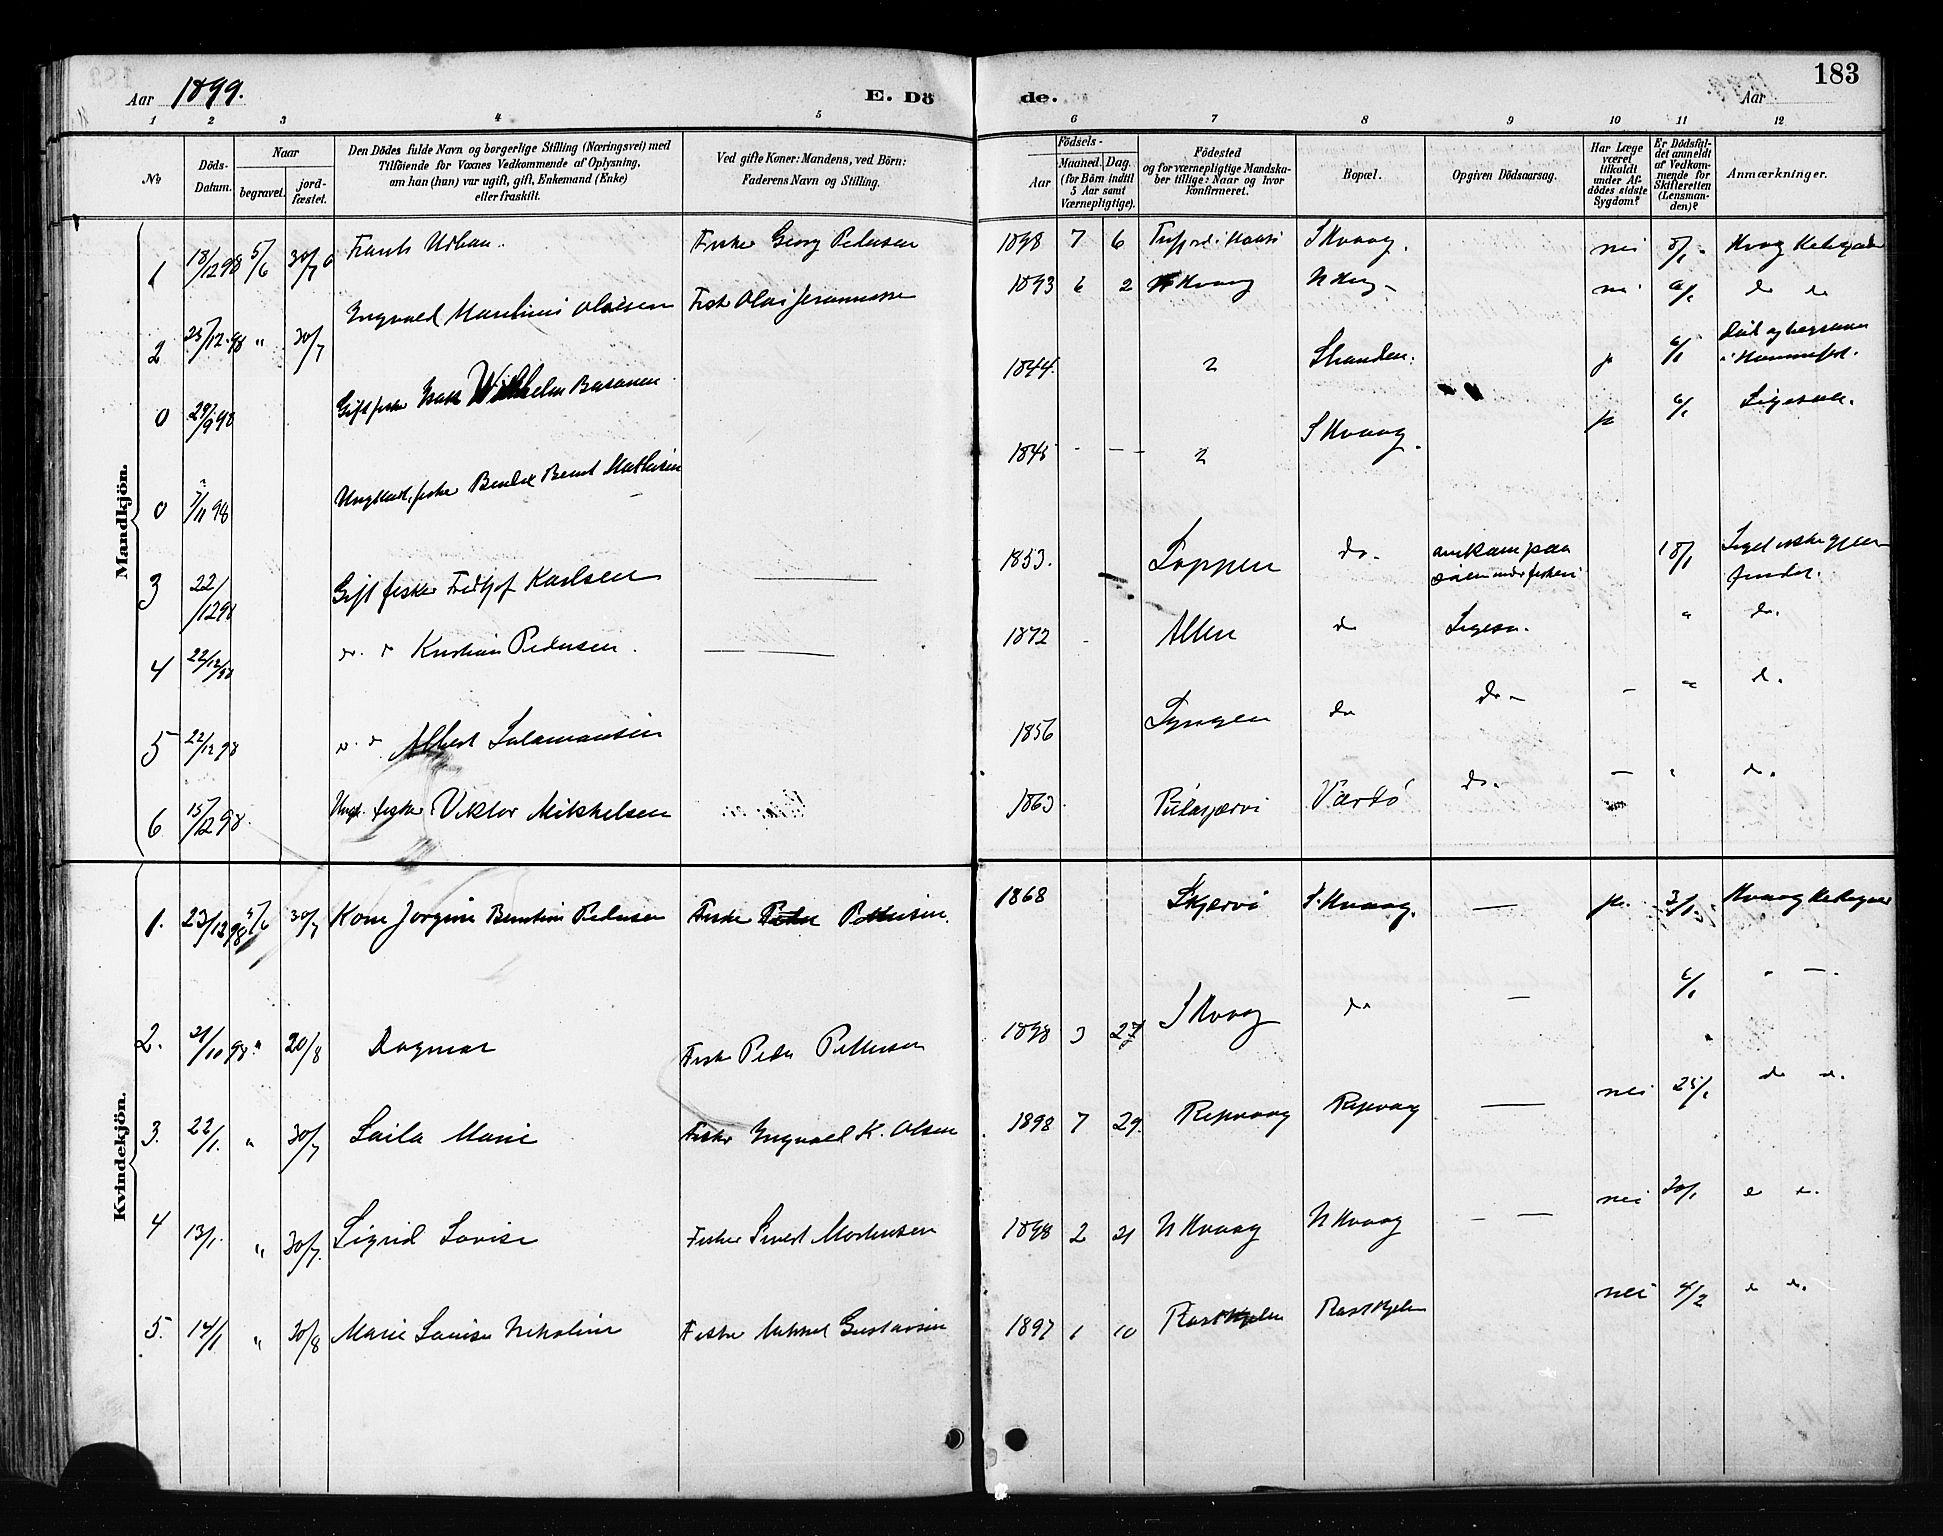 Aar 1899. E. Dö de. Aar 183
1 2 3 4 5 6 7 8 9 10 11 12
No. Döds-Datum. Naar begravet. jord-fæstet. Den Dödes fulde Navn og borgerlige Stilling (Næringsvei) med Tilföiende for Voxnes Vedkommende af Oplysning, om han (hun) var ugift, gift, Enkemand (Enke) eller fraskilt. Ved gifte Koner: Mandens, ved Börn: Faderens Navn og Stilling. Födsels- Aar Maaned. Dag. (for Börn indtil 5 Aar samt Værnepligtige). Födested og for værnepligtige Mandska-ber tillige: Naar og hvor konfirmeret. Bopæl. Opgiven Dödsaarsag. Har Læge været tilkaldt under Af-dödes sidste Sygdom? Er Dödsfal-det anmeldt af Vedkom-mende for Skifteretten (Lensman-den)? Anmærkninger.
Mandkjön.
1 18/12 98 5/6 30/7 Frants Urban. Fisker Georg Pedersen 1898 7 6 S Kvaag. nei 5/1
2 25/12 98 " 30/7 Ingvald Olaisen Fisk Olai 1893 6 2 Kvaag nei 6/1 do do
0 29/9 98 Gift fisker Isak Wilhelm 1844. Stranden. 6/1 Död og begraven i Hammerfest.
0 7/11 98 Ungkarl, fisker Bernt Mathisen 1845 - - - S Kvaag. 6/1 Ligesaa.
3 22/12 98 Gift fisker Fridtjof Karlsen 1853. Loppen do. omkom paa söen under fiskeri 18/1 Liget ikke gjen-fundet.
4 22/12 98 do. do Kristian Pedersen. 1872 Alten do Ligesaa. " do.
5 22/12 98 do. do Albert Salamonsen 1856 Lyngen do do - - " do.
6 15/12 98. Ungk. fisker Viktor Mikkelsen 1863 Vardö do. - " do.
Kvindekjön.
1. 23/12 98 5/6 30/7 Kone Jorgine Berntine Pedersen Fisker 1868 Skjærvö S. Kvaag. — 3/1
2. 21/10 98. " 20/8 Dagmar Fisker Peder Pettersen 1898 3 27 S Kvaag do — 6/1 " —.
3. 22/1. " 30/7 Laila Marie Fisker Ingvald K. Olsen 1898 7 29. Repvaag Repvaag — nei 25/1 do do.
4 13/1. " 30/7. Sigrid Lovise Fisker Sivert Mortensen 1898 2 21 N Kvaag N Kvaag — — nei 30/1 do do.
5. 14/1 " 30/8 Marie Lovise Nikoline Fisker Mikkel Gustavsen 1897 1 10 nei 4/2 do do.